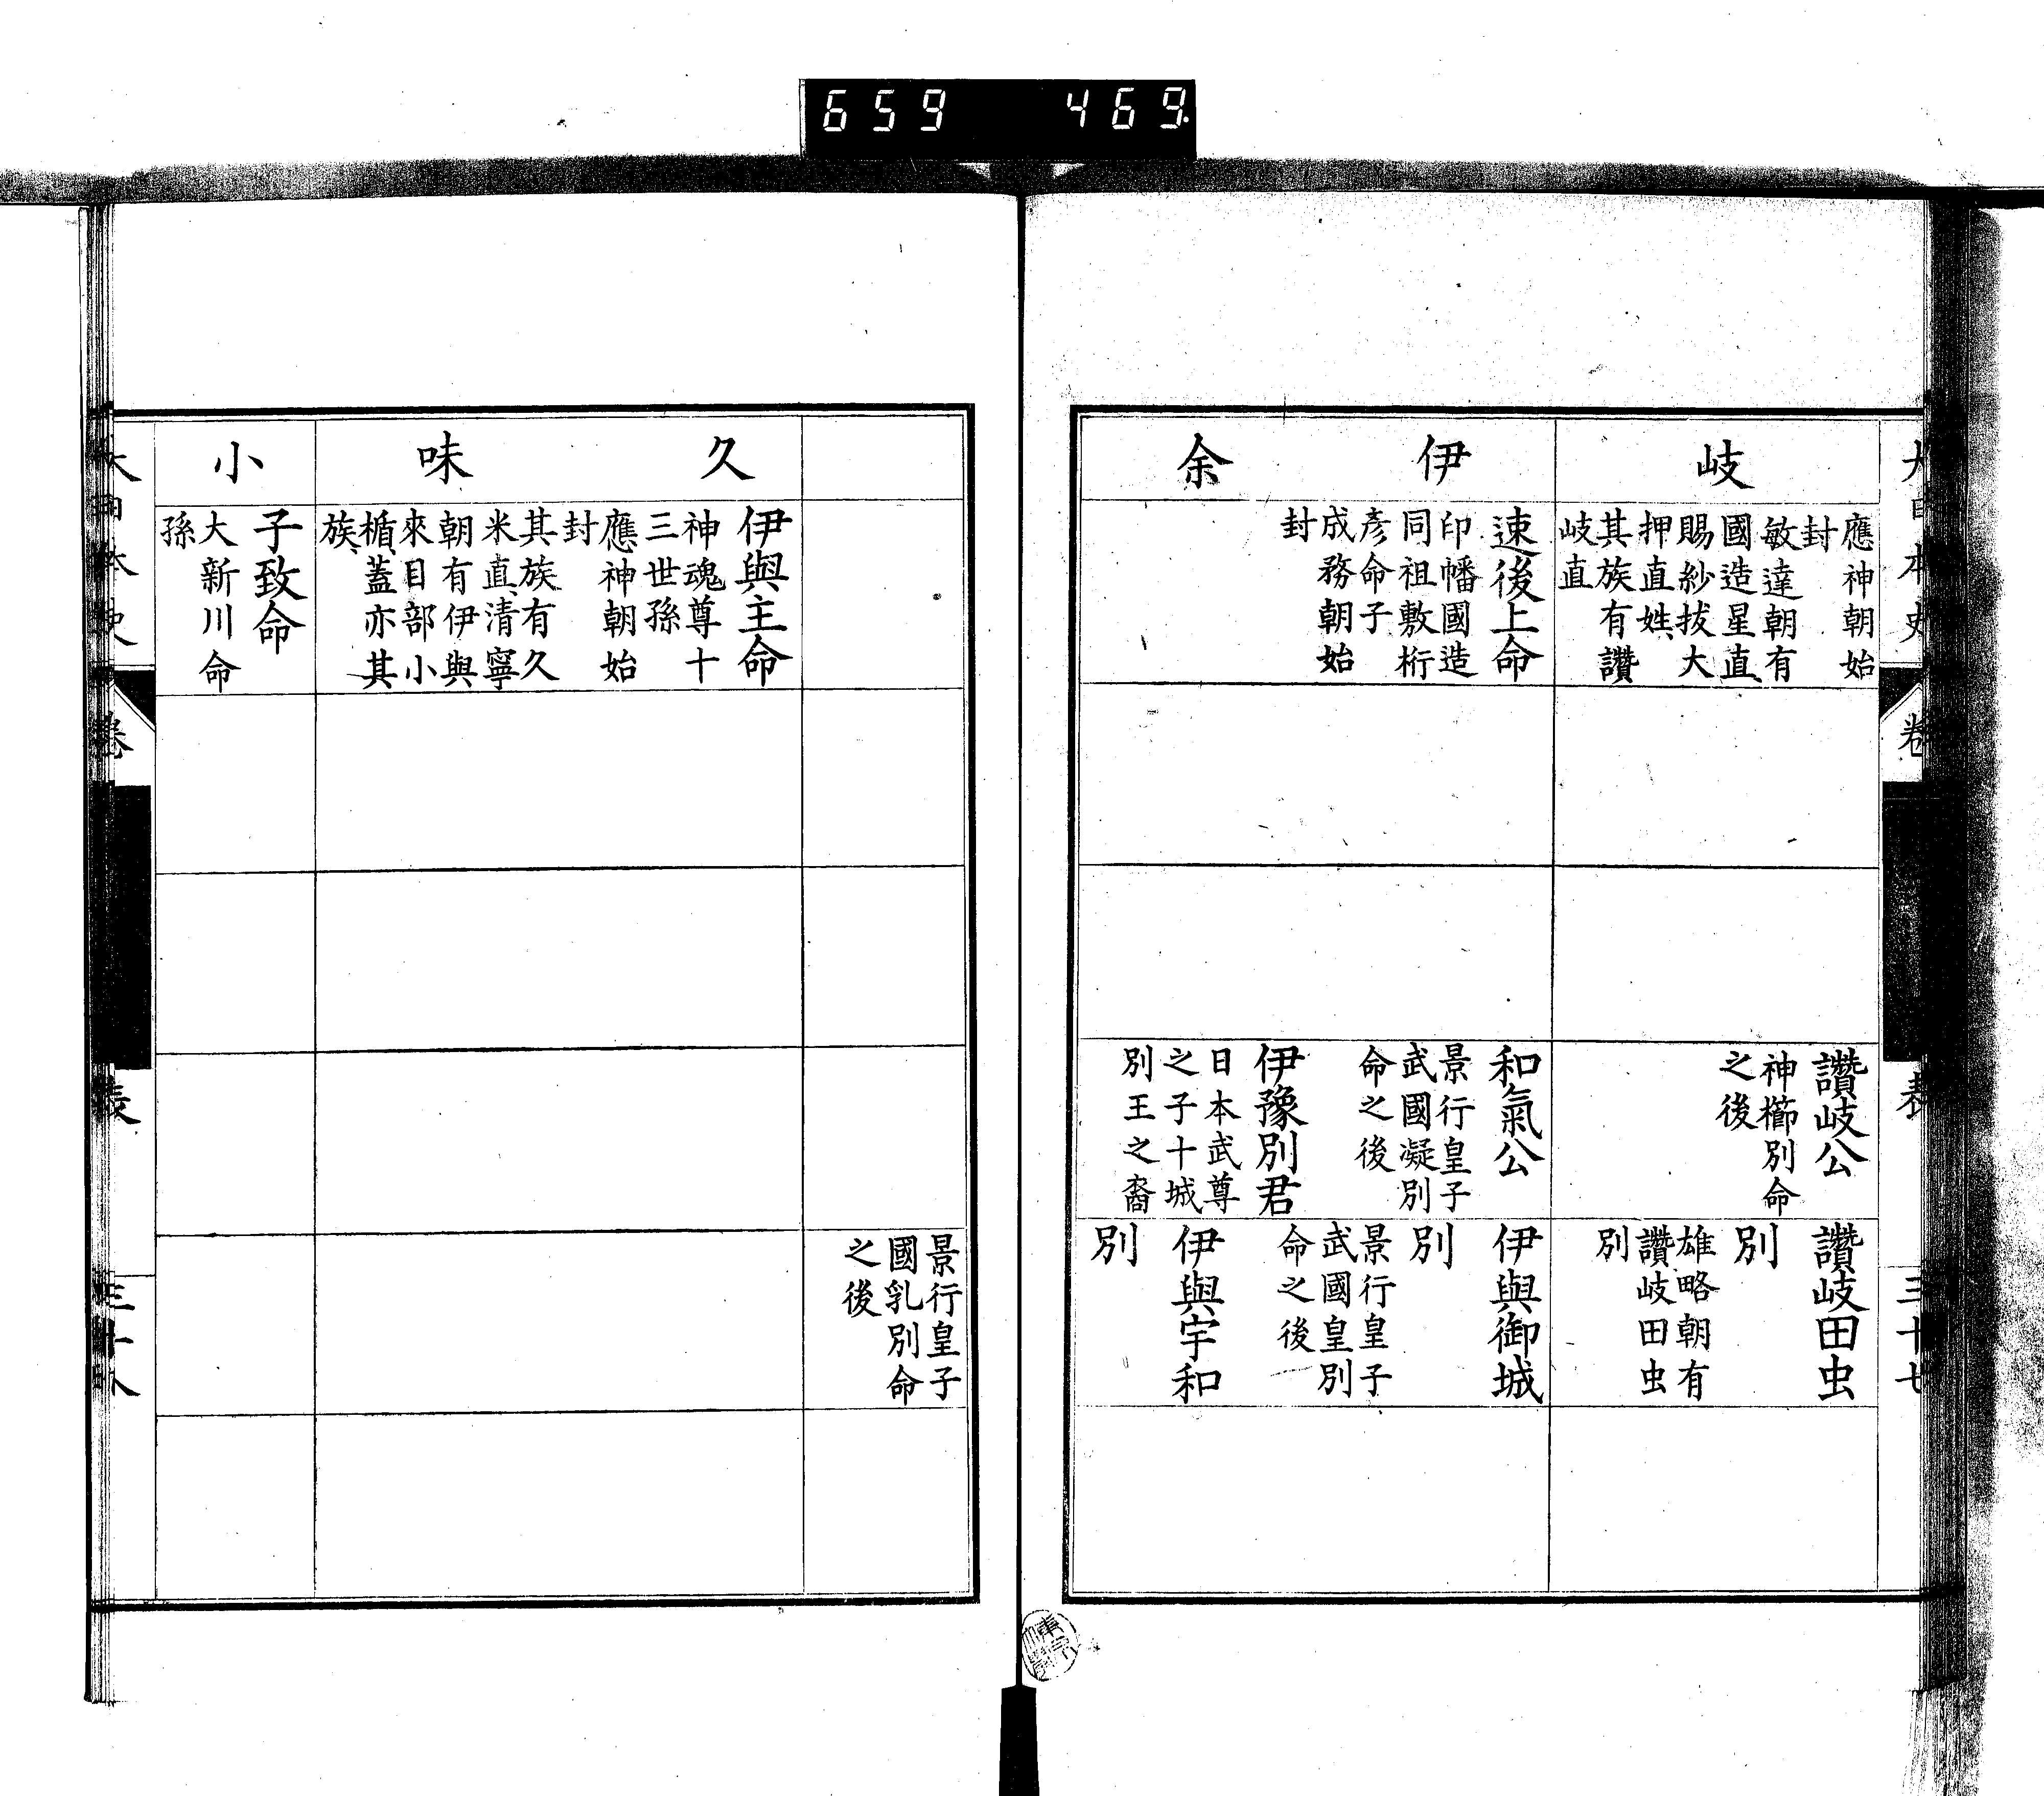 659 469
岐
應神朝始
封
敏達朝有
國造星直
賜紗拔大
押直姓
其族有讚
岐直
讚岐公
神櫛別命
之後
讚岐田虫
別
雄略朝有
讚岐田虫
別
伊余
速後上命
印幡國造
同祖敷桁
彥命子
成務朝始
封
和氣公
景行皇子
武國凝別
命之後
伊豫別君
日本武尊
之子十城
別王之裔
伊與御城
別
景行皇子
武國皇別
命之後
伊與宇和
別
景行皇子
國乳別命
之後
久味
伊與主命
神魂尊十
三世孫
應神朝始
封
其族有久
米直清寧
朝有伊與
來目部小
楯蓋亦其
族
小
子致命
大新川命
孫
卷
表
三十七